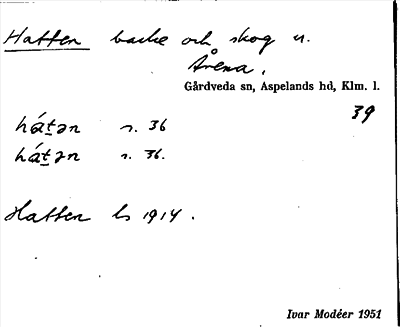 Hatten backe och skog u.
Årena.
Gårdveda sn, Aspelands hd, Klm. l.
39
hát̲ən r. 36
hát̲ən r. 36.
Hatten ls 1914.
Ivar Modéer 1951